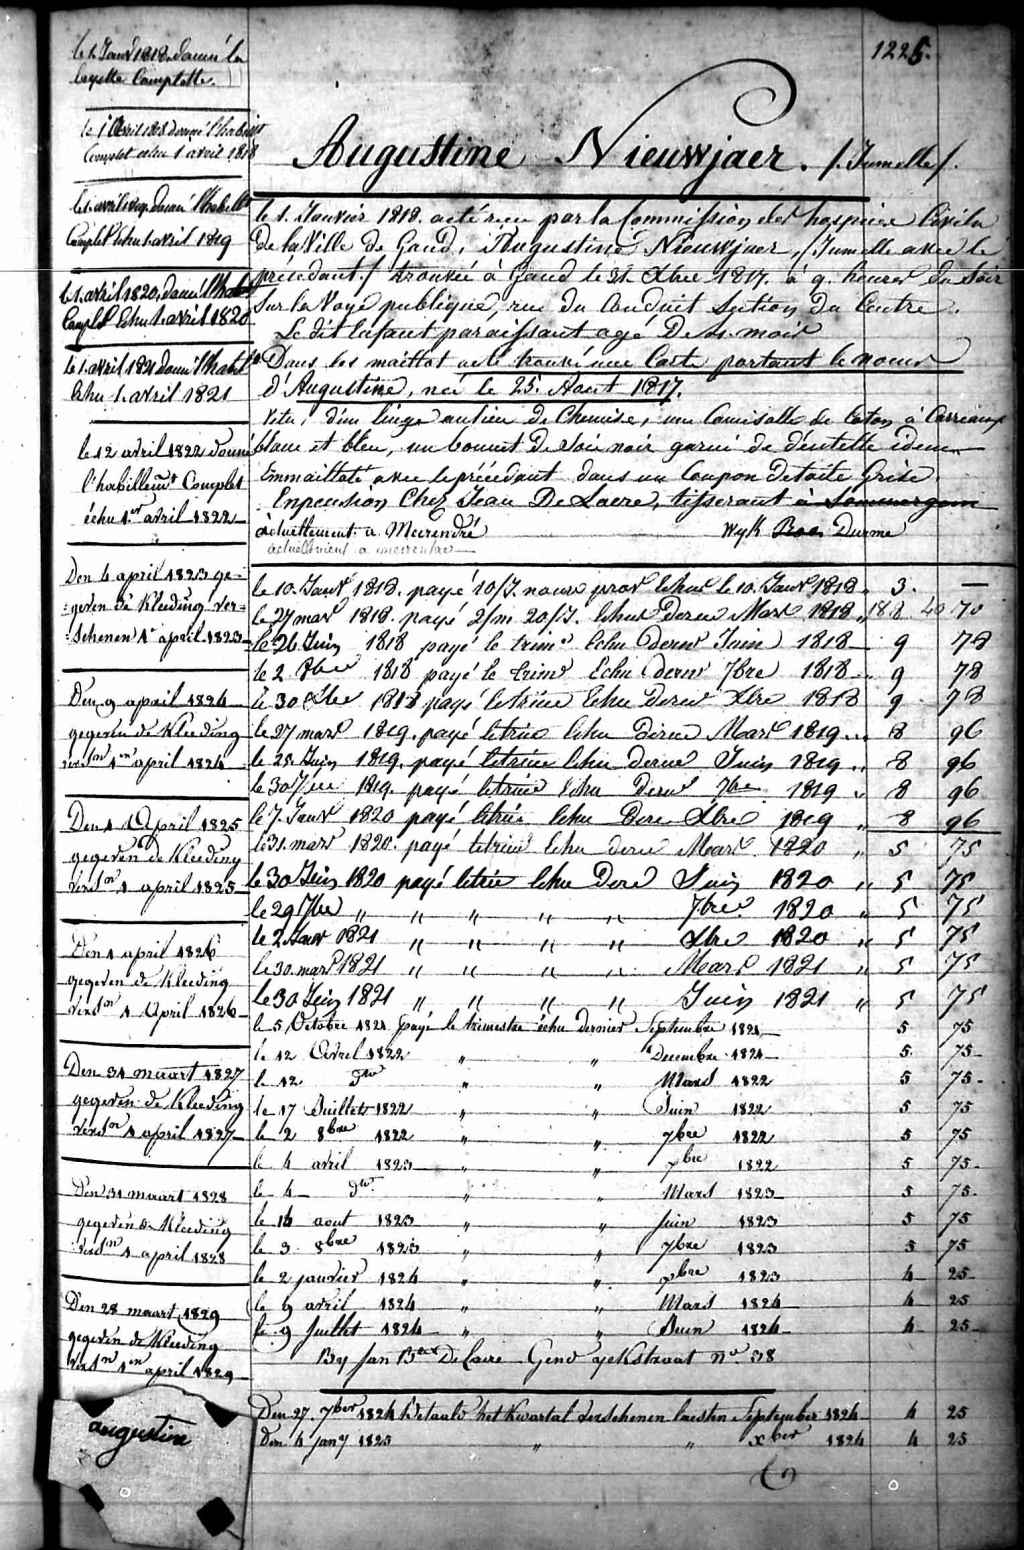 1225.
le 1. Janv 1818. donné la
layette Complette.
le 1 Avril 1818 donné l'habill
Complet echu 1 avril 1818
le 1. avril 1819. donné l'habill
Complt Echu 1. avril 1819
le 1. avril 1820. donné l'habill
Complt Echu 1. avril 1820
le 1. avril 1821 donné l'habillt
Echu 1. avril 1821
le 12 avril 1822 donné
l'habillemt Complet
échu 1er avril 1822
Den 4 april 1823 ge-
geven de Kleeding ver-
schenen 1e april 1823
Den 9 april 1824
gegeven de Kleeding
versn 1en april 1824
Den 1 April 1825
gegeven de Kleeding
versn 1 april 1825
Den 1 april 1826
gegeven de Kleeding
versn 1 April 1826
Den 31 maart 1827
gegeven de Kleeding
versn 1 april 1827
Den 31 maart 1828
gegeven de Kleeding
versn 1 april 1828
Den 28 maart 1829
gegeven de Kleeding
versn 1en april 1829
augustine
Augustine Nieuwjaer. /. Jumelle /.
le 1. Janvier 1818. acté reçu par la Commission des hospices Civils
de la Ville de Gand, Augustine Nieuwjaer, /. Jumelle avec le
précedant / trouvée à Gand le 31. Xbre 1817. à 9. heures du Soir
Sur la Voye publique, rue du Conduit Section du Centre.
Le dit Enfant paraissant agé De 4. mois
Dans les maillot acté trouvé une Carte portant le nom
d'Augustine, née le 25. Aout 1817.
Vetu, d'un linge au lieu de Chemise, une Camisolle de Coton à Carreaux
blanc et bleu, un bonnet de Soie noir garni de dentelle idem
Emmaillotté avec le précédant dans un Coupon
Enpension Chez Jean De Laere, tisserant à Sommergem
actuellement a Meerendré Wyk Durme
actuellement a meerendre
le 10. Janvr 1818. payé 10/J. Echus le 10. Janvr 1818 3. —
le 27 mars 1818. payé 2/m 20/J. Echus Derer Mars 1818 18 40 70
le 26 Juin 1818 payé le trime Echu derer Juin 1818 9 78
le 2 8bre 1818 payé le trime Echu derer 7bre 1818 9 78
le 30 Xbre 1818 payé le trime Echu derer Xbre 1818 9 78
le 27 mars 1819. payé le trime Echu Derer Mars 1819 8 96
le 28 Juin 1819. payé le trime Echu derer Juin 1819 8 96
le 30 7bre 1819. payé le trime Echu Derer 7bre 1819 8 96
le 7 Janvr 1820 payé le trime Echu Derer Xbre 1819 8 96
le 31. mars 1820. payé le trime Echu derer Mars 1820 5 75
le 30 Juin 1820 payé le trime Echu Derer Juin 1820 5 75
le 29 7bre " " " " " 7bre 1820 5 75
le 2 Janvr 1821 " " " " " Xbre 1820 5 75
le 30. mars 1821 " " " " " Mars 1821 5 75
le 30 Juin 1821 " " " " " Juin 1821 5 75
le 5 Octobre 1821 payé le trimestre échu dernier Septembre 1821 5 75
le 12 Avril 1822 " " Decembre 1821 5 75
le 12 do " " Mars 1822 5 75
le 17 Juillet 1822 " " Juin 1822 5 75
le 2 8bre 1822 " " 7bre 1822 5 75
le 4 avril 1823 " " 7bre 1822 5 75
le 4 do " " Mars 1823 5 75
le 14 aout 1823 " " Juin 1823 5 75
le 3 8bre 1823 " " 7bre 1823 5 75
le 2 janvier 1824 " " 7bre 1823 4 25
le 9 avril 1824 " " Mars 1824 4 25
le 9 Juillet 1824 " " Juin 1824 4 25
By Jan De Laire Gend no. 38
Den 27. 7ber 1824 betaald het Kwartal verschenen laesten September 1824 4 25
Den 4 jany 1825 " " xber 1824 4 25